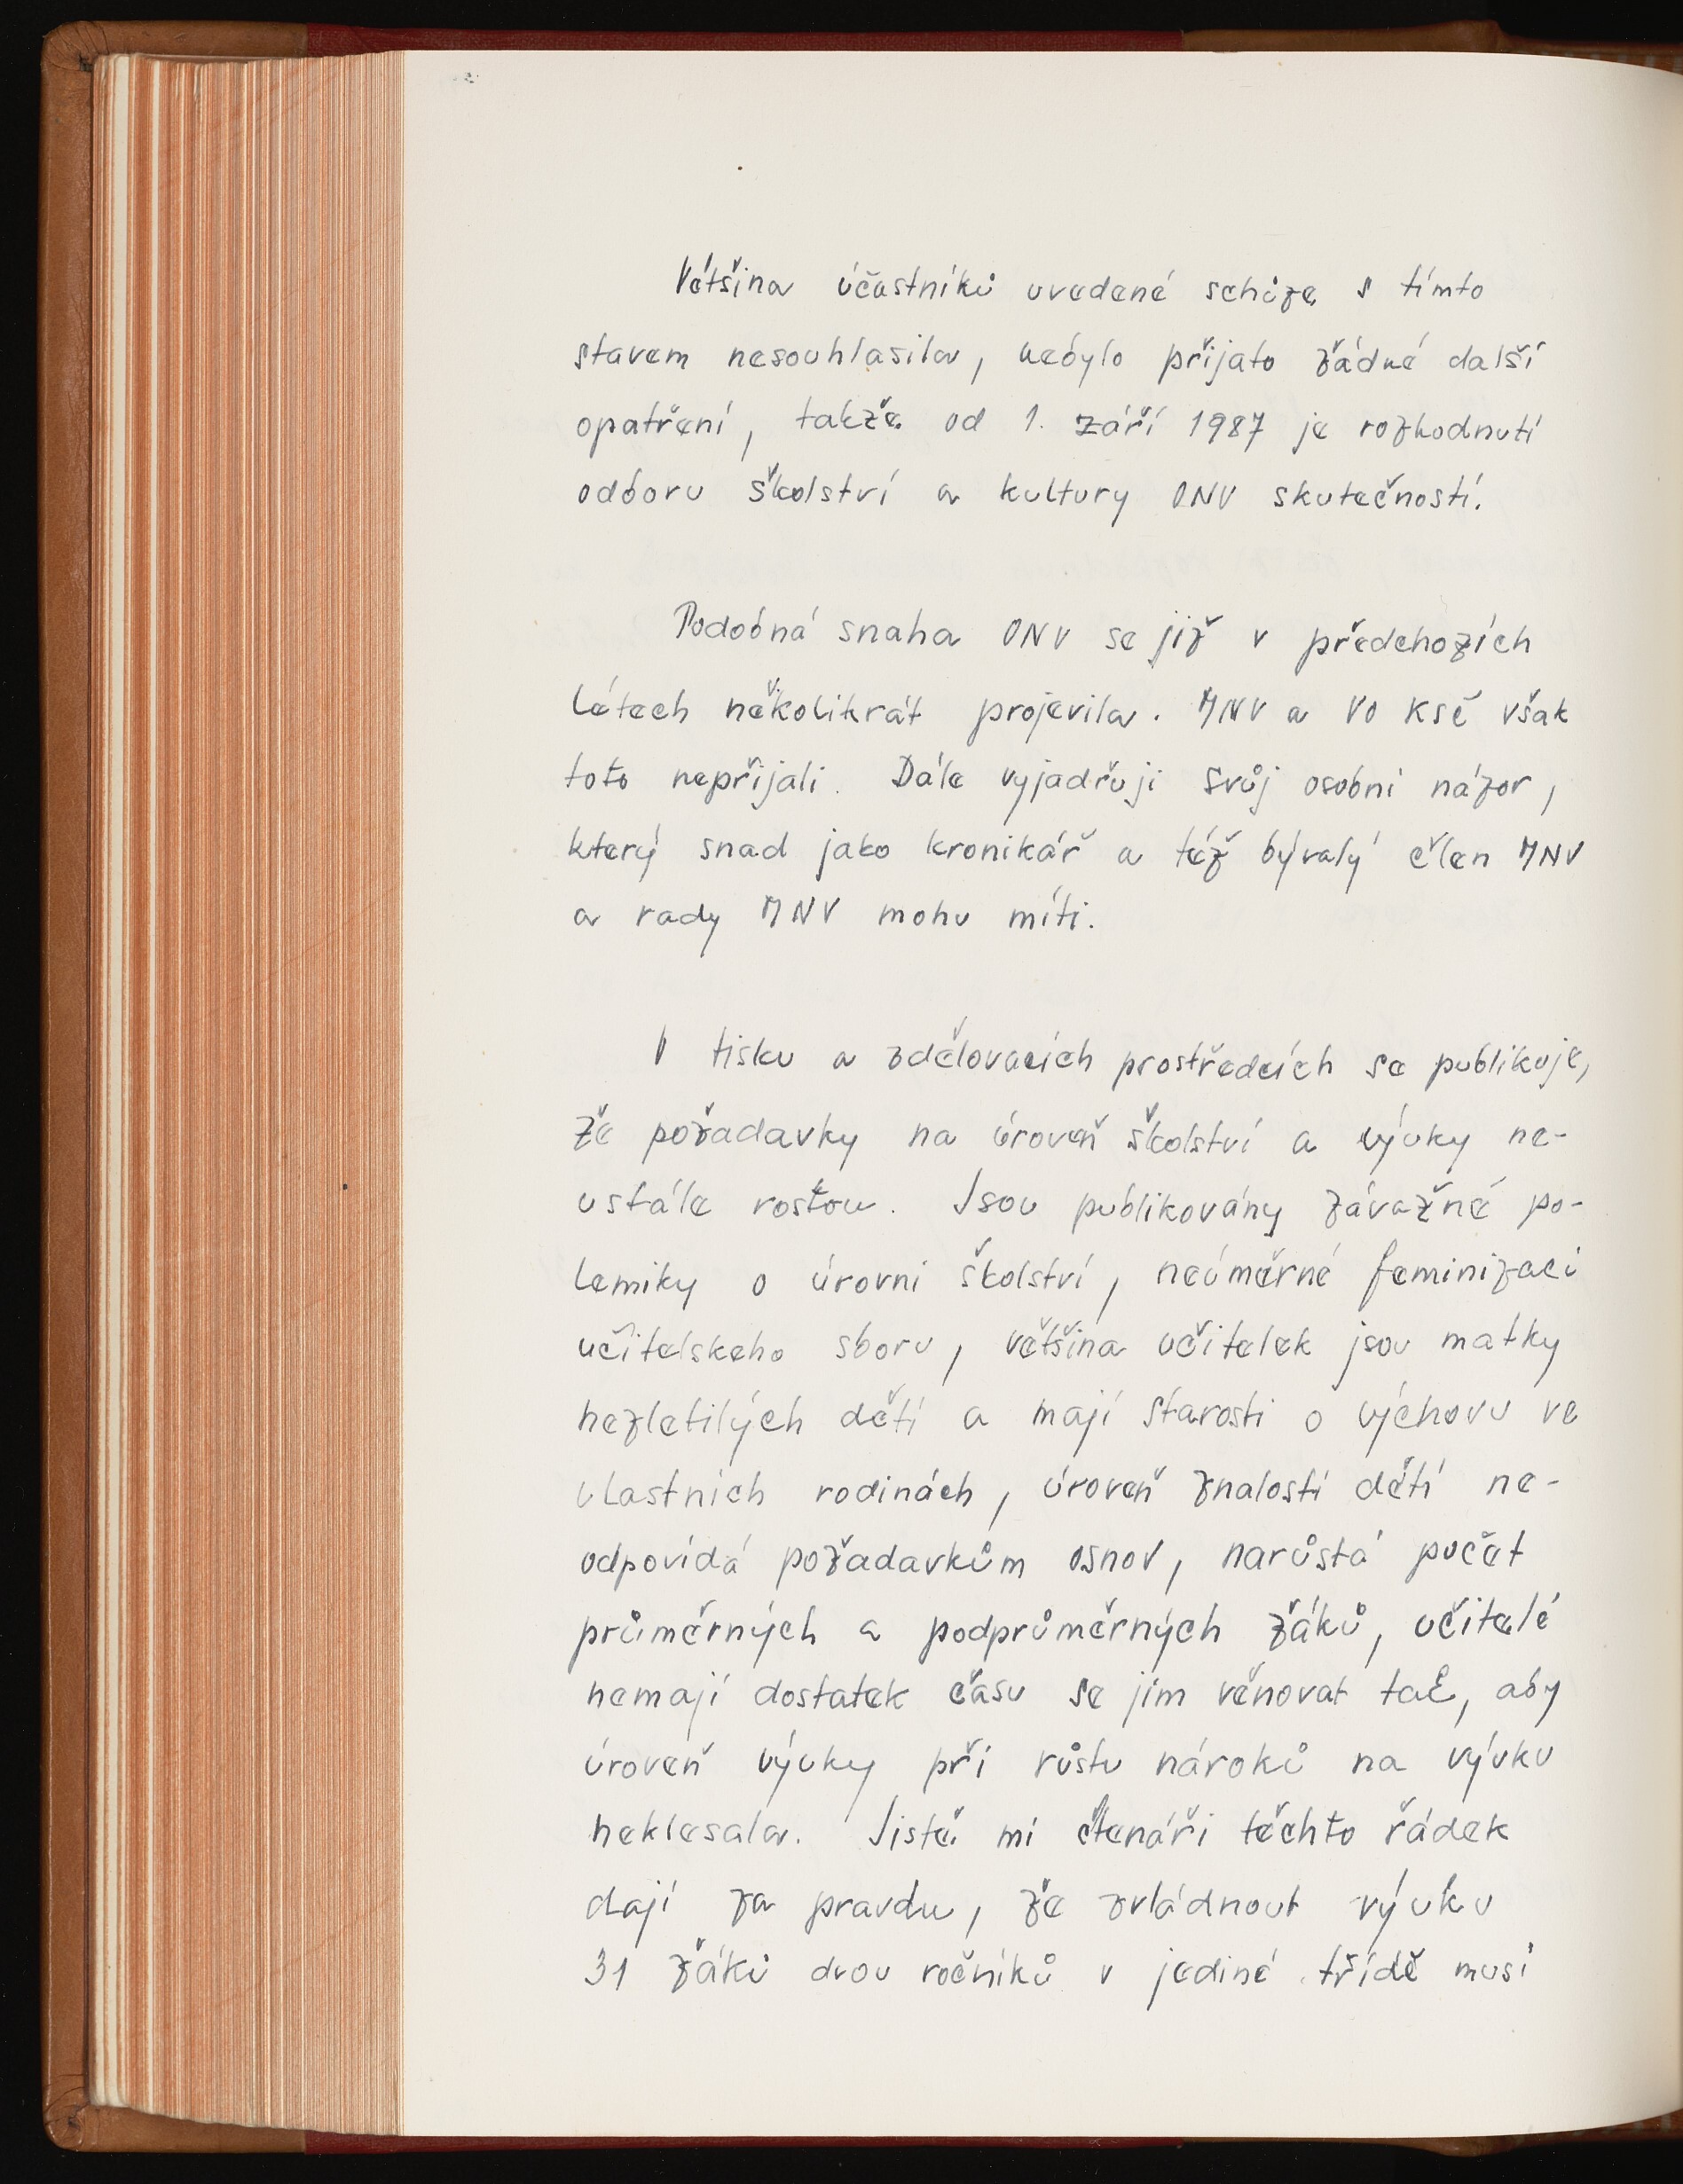 Většina účastníků uvedené schůze s tímto
stavem nesouhlasila, nebylo přijato žádné další
opatření, takže od 1. září 1987 je rozhodnutí
odboru školství a kultury ONV skutečností.
Podobná snaha ONV se již v předchozích
létech několikrát projevila. MNV a VO KSČ však
toto nepřijali. Dále vyjadřuji svůj osobní názor,
který snad jako kronikář a též bývalý člen MNV
a rady MNV mohu míti.
V tisku a zdělovacích prostředcích se publikuje,
že požadavky na úroveň školství a výuky ne-
ustále rostou. Jsou publikovány závažné po-
lemiky o úrovni školství, neúměrné feminizaci
učitelskeho sboru, většina učitelek jsou matky
nezletilých dětí a mají starosti o výchovu ve
vlastních rodinách, úroveň znalostí dětí ne-
odpovídá požadavkům osnov, narůstá počet
průměrných a podprůměrných žáků, učitelé
nemají dostatek času se jim věnovat tak, aby
úroveň výuky při růstu nároků na výuku
neklesala. Jistě mi čtenáři těchto řádek
dají za pravdu, že zvládnout výuku
31 žáků dvou ročníků v jediné třídě musí